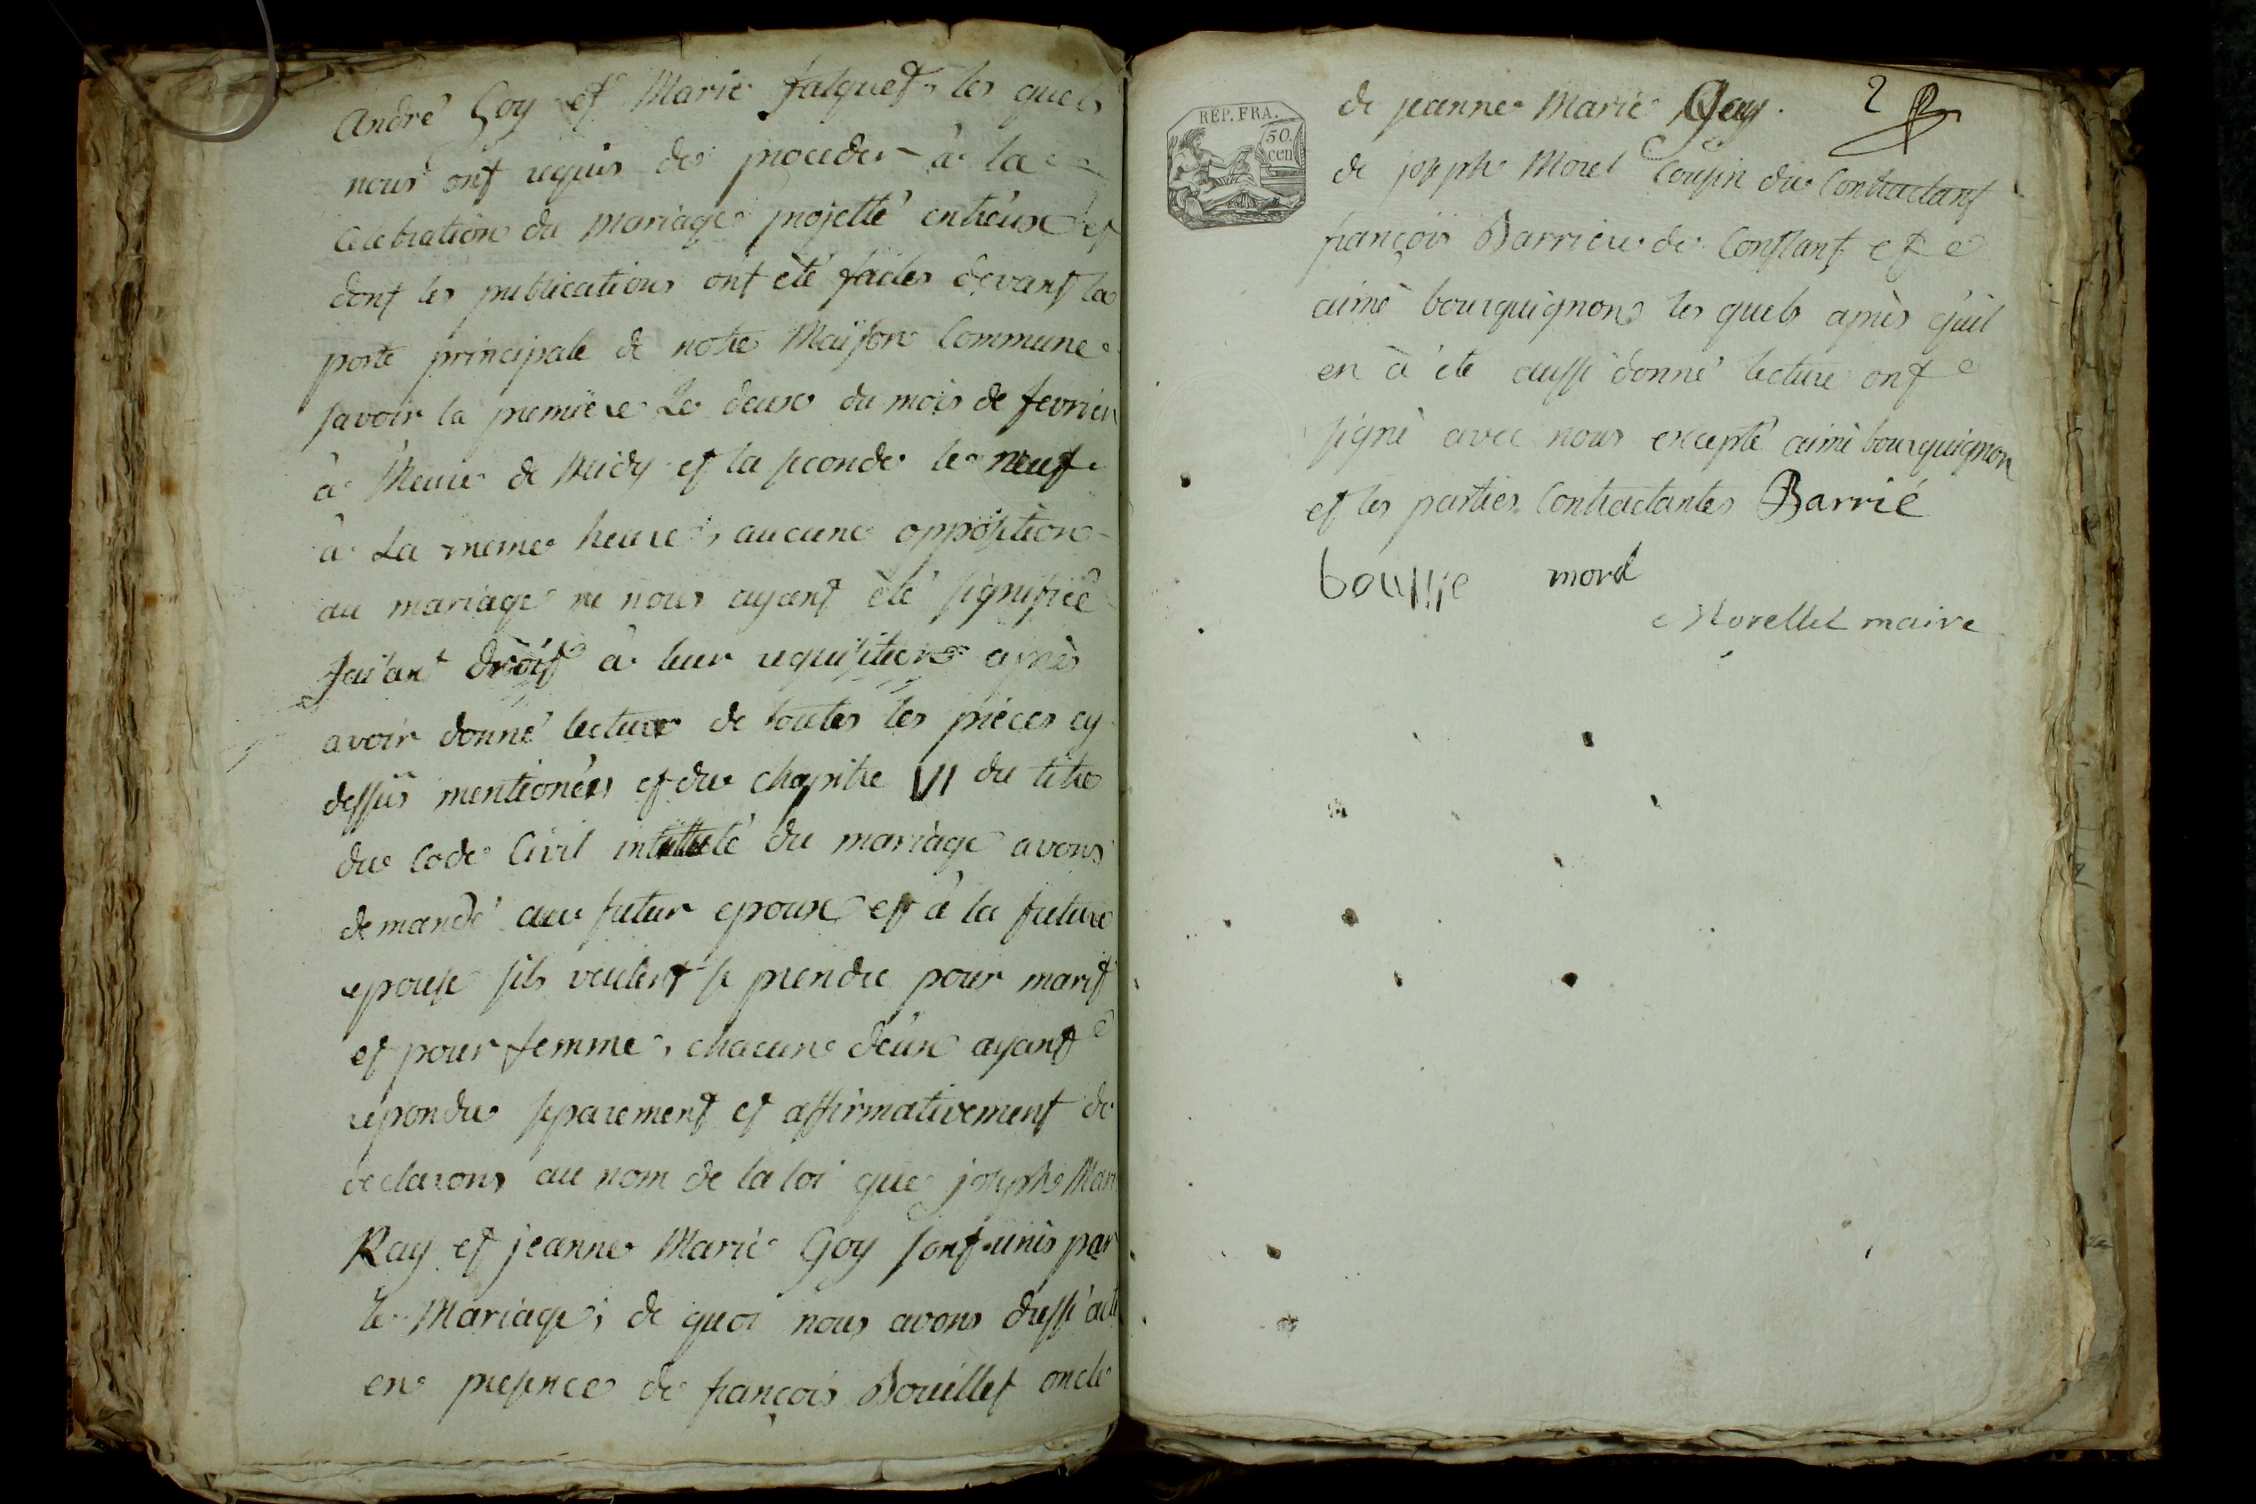 andré Goy et Marie falquet, les quels
nous ont requis de proceder à la
celebration du mariage projetté entr'eux et
dont les publications ont èté faites devant la
porte principale de notre Maison Commune
savoir la premiere Le deux du mois de fevrier
à l'heure de Midy et la seconde le neuf
à La meme heure, aucune opposition
au mariage ne nous ayant èté signifiée
faisant droit à leur requisition après
avoir donné lecture de toutes les pièces cy
dessus mentionées et du chapitre VI du titre
du Code Civil intitulé du mariage avons
demandé au futur epoux et à la future
epouse s'ils veulent se prendre pour marit
et pour femme, chacun d'eux ayant
repondu separement et affirmativement
declarons au nom de la loi que joseph Marie
Ray et jeanne Marie Goy sont unis par
le Mariage; de quoi nous avons dressé acte
en presence de françois Bouillet oncle
de jeanne Marie Goy. 2
REP. FRA.
50. cen
de joseph Morel Cousin du Contractant
françois Barrieu de Constant et
aimé bourguignon les quels après qu'il
en à été aussi donné lecture ont
signé avec nous excepté aimé bourguignon
et les parties Contractantes Barrié
morel
Morellet maire